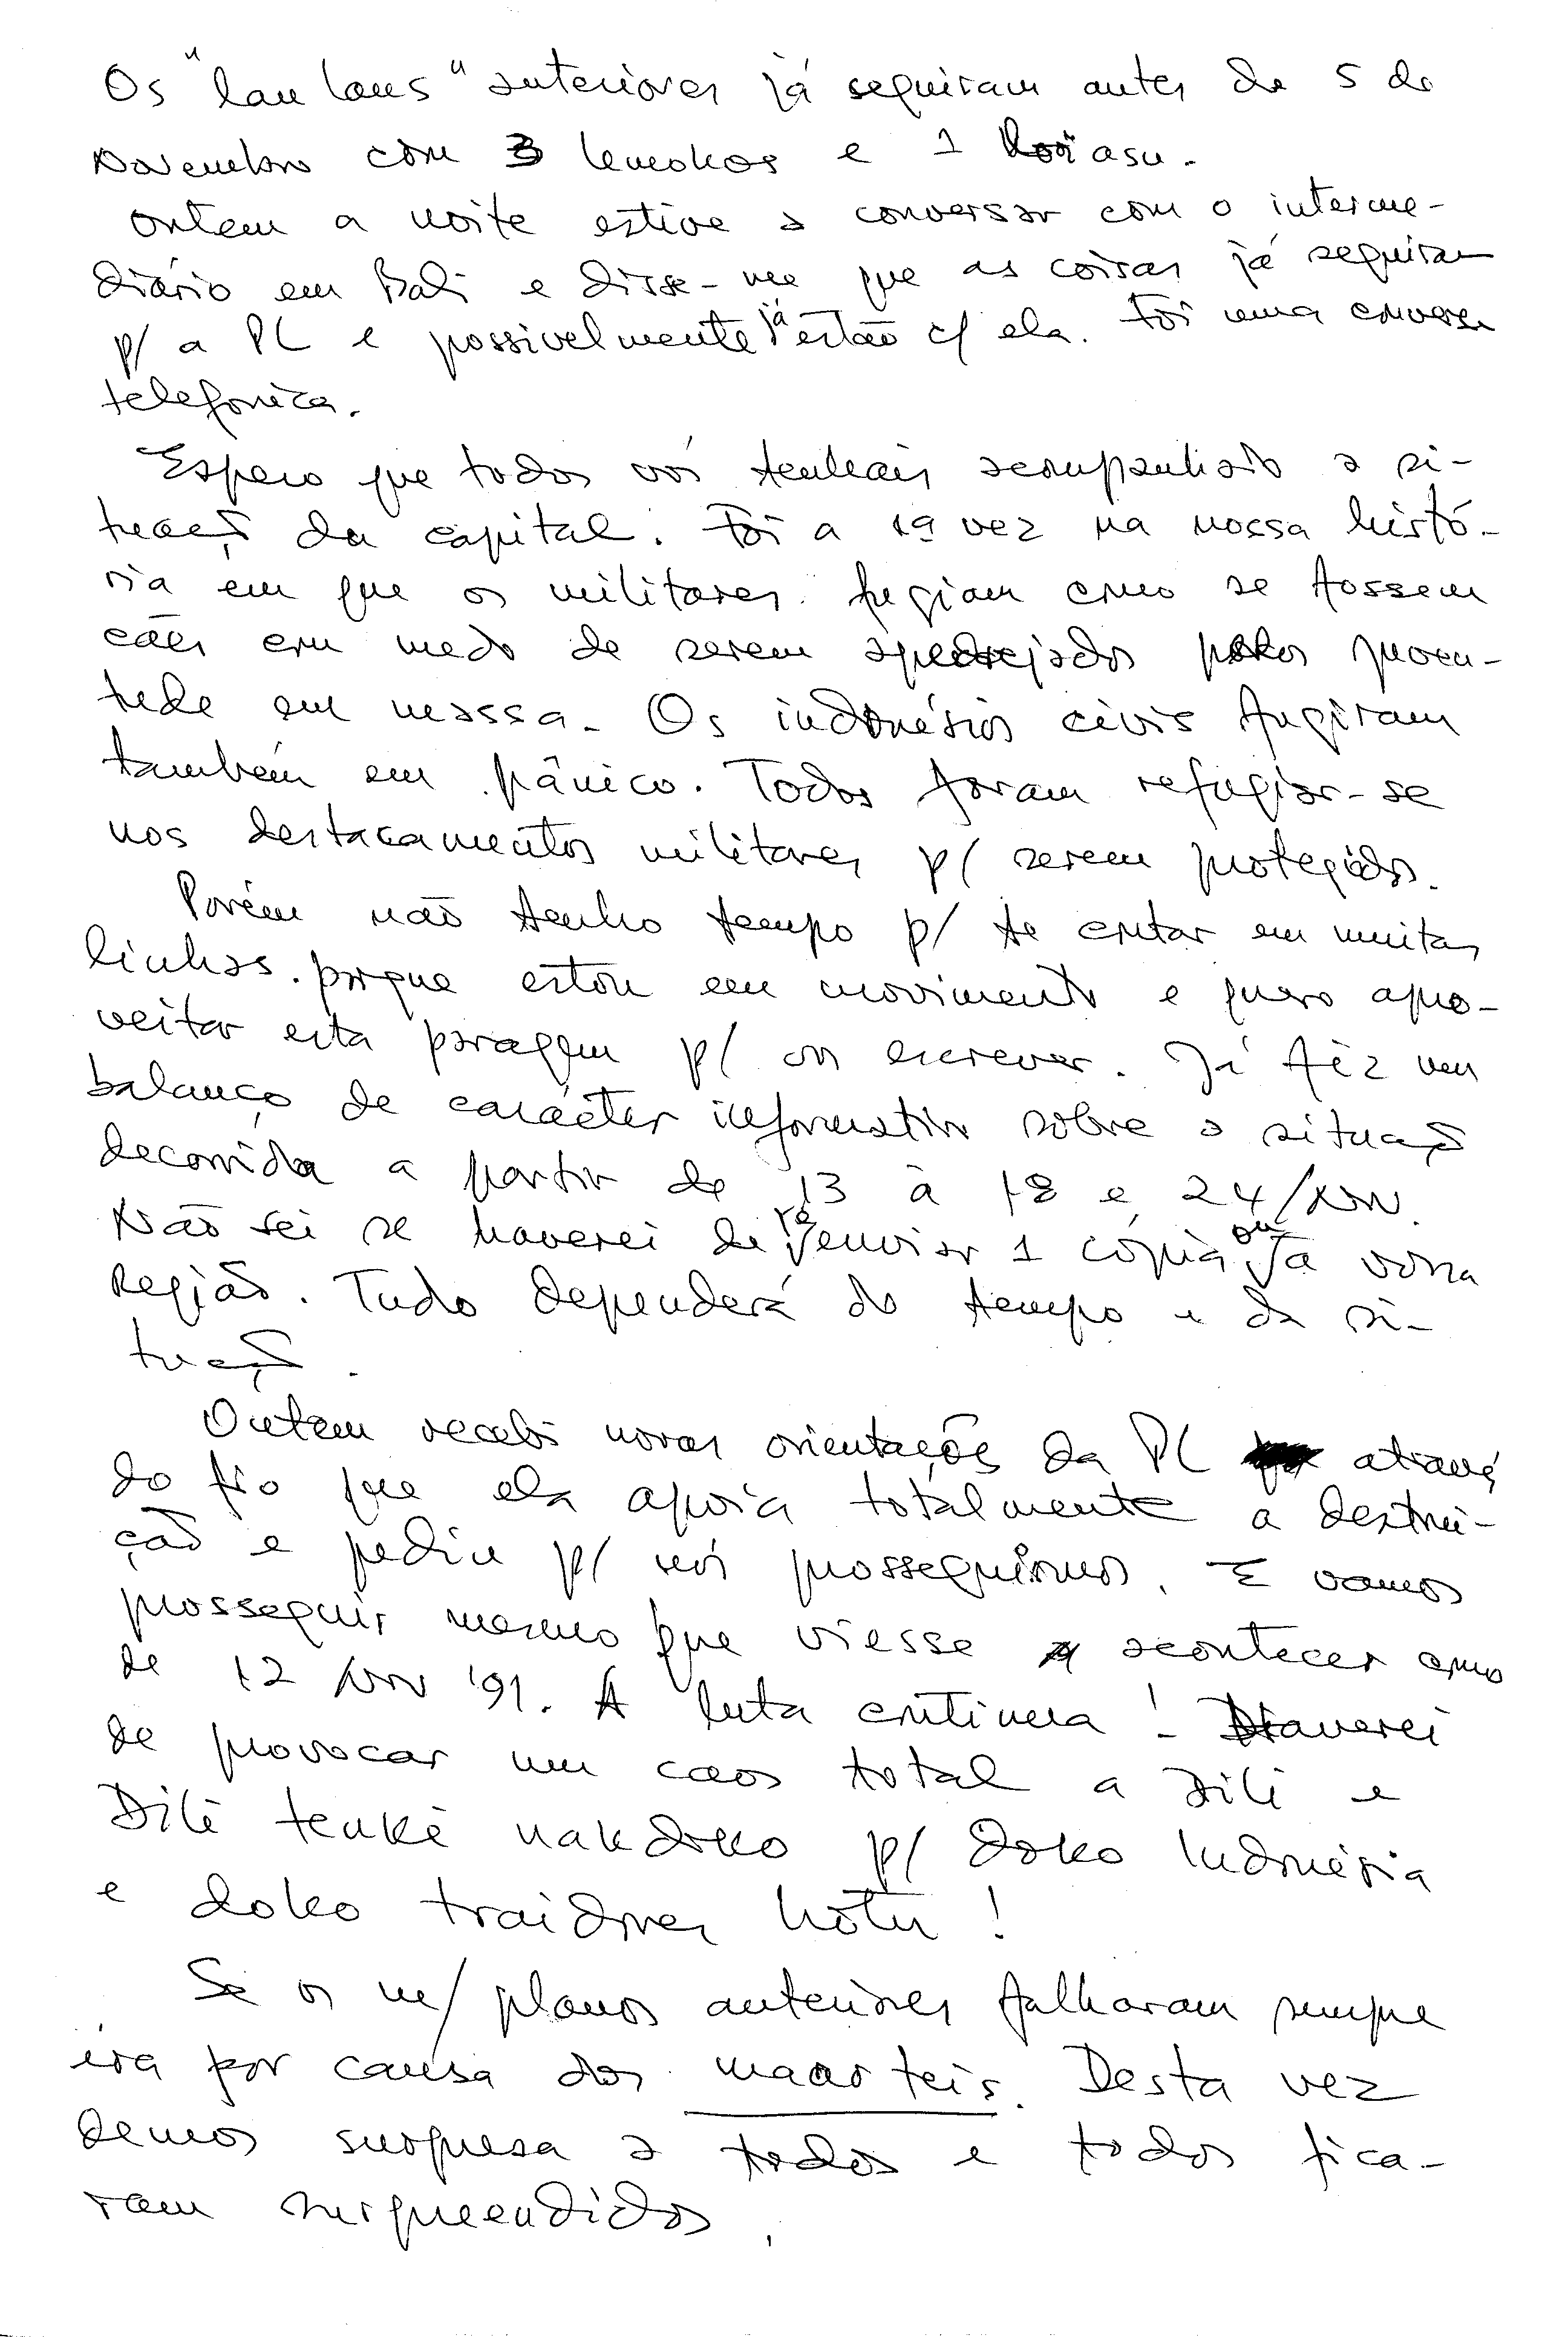 Os "lau laus" anteriores já seguiram antes de 5 de
Novembro com 3 lemokos e 1 asu.
Ontem a noite estive a conversar com o interme-
diário em Bali e disse-me que as coisas já seguiram
p/ a PL e possivelmente já estão c/ ela. Foi uma conversa
telefonica.
Espero que todos vós tenhais acompanhado a si-
tuação da capital. Foi a 1ª vez na nossa histó-
ria em que os militares fugiam como se fossem
cães com medo de serem apedrejados pelos juven-
tude em massa. Os indonésios civis fugiram
também em pânico. Todos foram refugiar-se
nos destacamentos militares p/ serem protegidos.
Porém não tenho tempo p/ te contar em muitas
linhas porque estou em movimento e quero apro-
veitar esta paragem p/ os escrever. Já fêz um
balanço de carácter informativo sobre a situação
decorrida a partir de 13 à 18 e 24/Nov.
Não sei se haverei de enviar 1 cópia à vossa
Região. Tudo dependerá do tempo e da si-
tuação.
Ontem recebi novas orientações da PL através
do fio que ela apoia totalmente a destrui-
ção e pediu p/ nós prosseguirmos. E vamos
prosseguir mesmo que viesse a acontecer como
de 12 Nov '91. A luta continua! Haverei
de provocar um caos total a Dili e
Dili tenkê nakdoko p/ doko Indonésia
e doko traidores hotu!
Se os n/ planos anteriores falharam sempre
era por causa dos maar teis. Desta vez
demos surpresa a todos e todos fica-
ram surpreendidos.